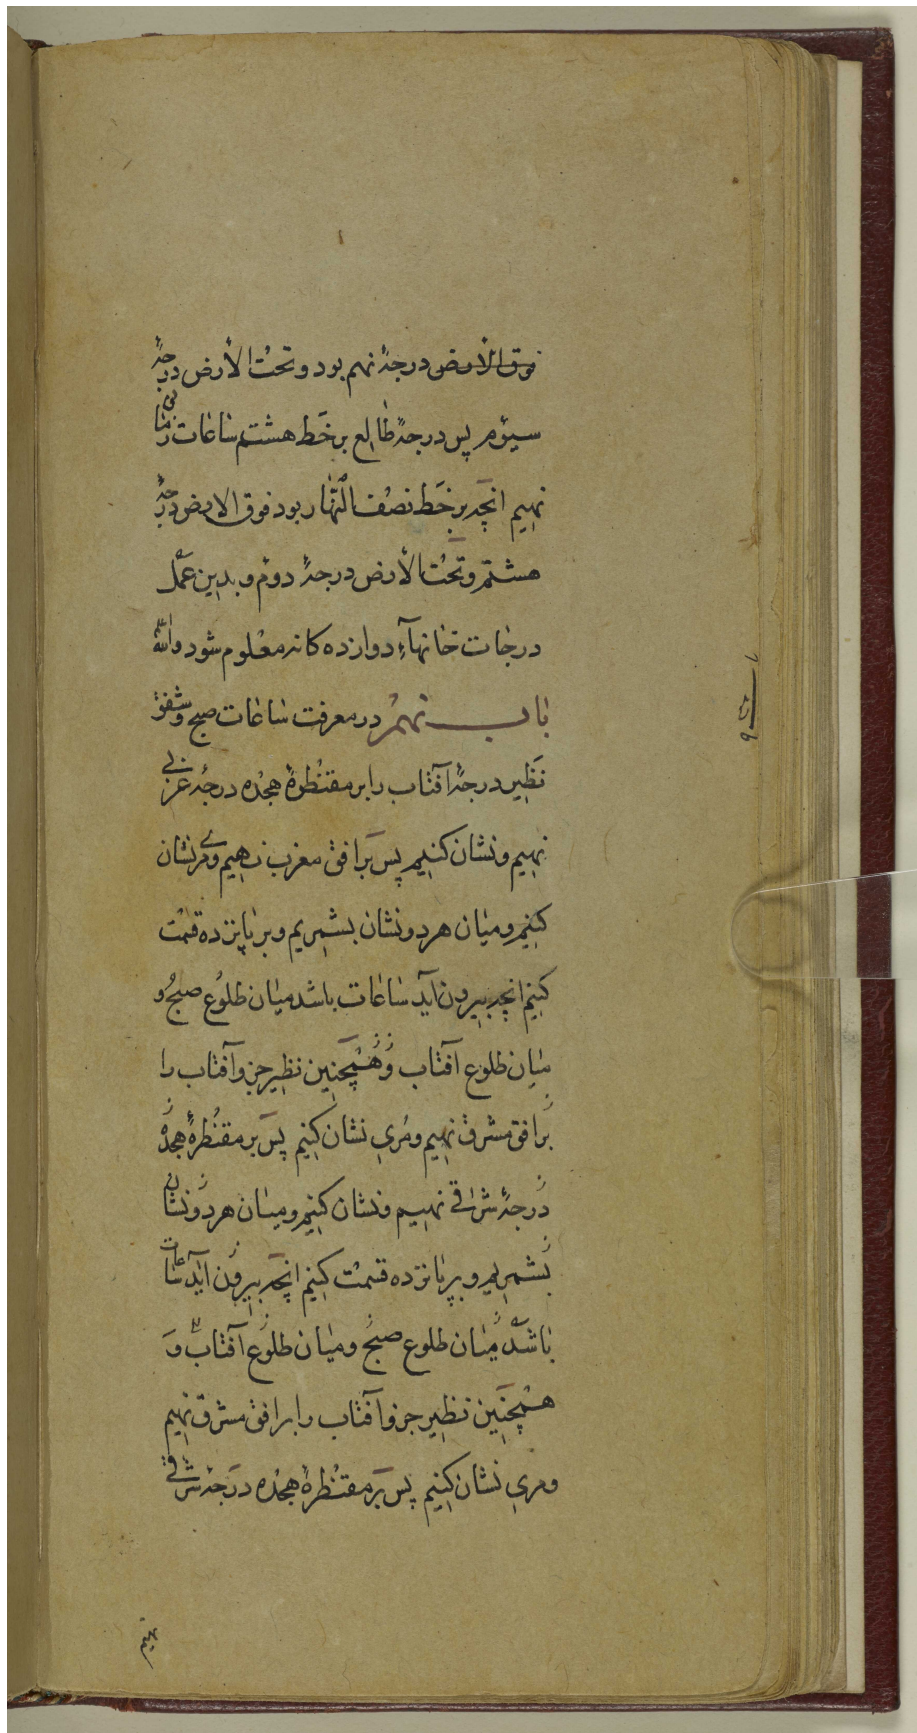 فوق الأرض درجهٔ نهم بود و تحت الأرض درجهٔ
سیوّم پس درجهٔ طالع بر خَط هشتم ساعات زمانی
نهیم انچَه بر خَط نصف النّهار بود فوق الارض درجهٔ
هشتم و تَحُت الأرض درجهٔ دوم و بدین عمل
درجات خانهآءِ دوازده کانه معْلوم شود والله
باب نهمْ در معرفت ساعات صبح و شفق
نَظیر درجهٔ آفتاب را بر مقنْطرهٔ هجْده درجهٔ غربی
نهیم و نشان کنیم پس بَر افق مغرب نهیم و مری نشان
کنیم و میان هر دو نشان بشمریم و بر پانزده قسْمت
کنیم انچه بیرون آید ساعات باشد میان طلوُع صبحُ و
میان طلوع آفتاب وَ هْمچَنین نظیر جزو آفتاب را
بُر افق مشرق نهیم و مُری نشان کنیم پسَ بر مقنْطرهٔ هجْده
دُرجهٔ شراقی نهیم و نشان کنیم و میان هر دو نشان
بشمریم و بر پانزده قسمتْ کنیم انچَه بیرون آید ساعات
باشدْ میٰان طلوع صبحُ و میان طلوُع آفتابْ وَ
همْچنَین نظیر جزو آفتاب را بر افق مشرق نهیم
و مری نشان کنیم پس بَر مقنْطرهٔ هجْده درَجه شرقی
نهیم